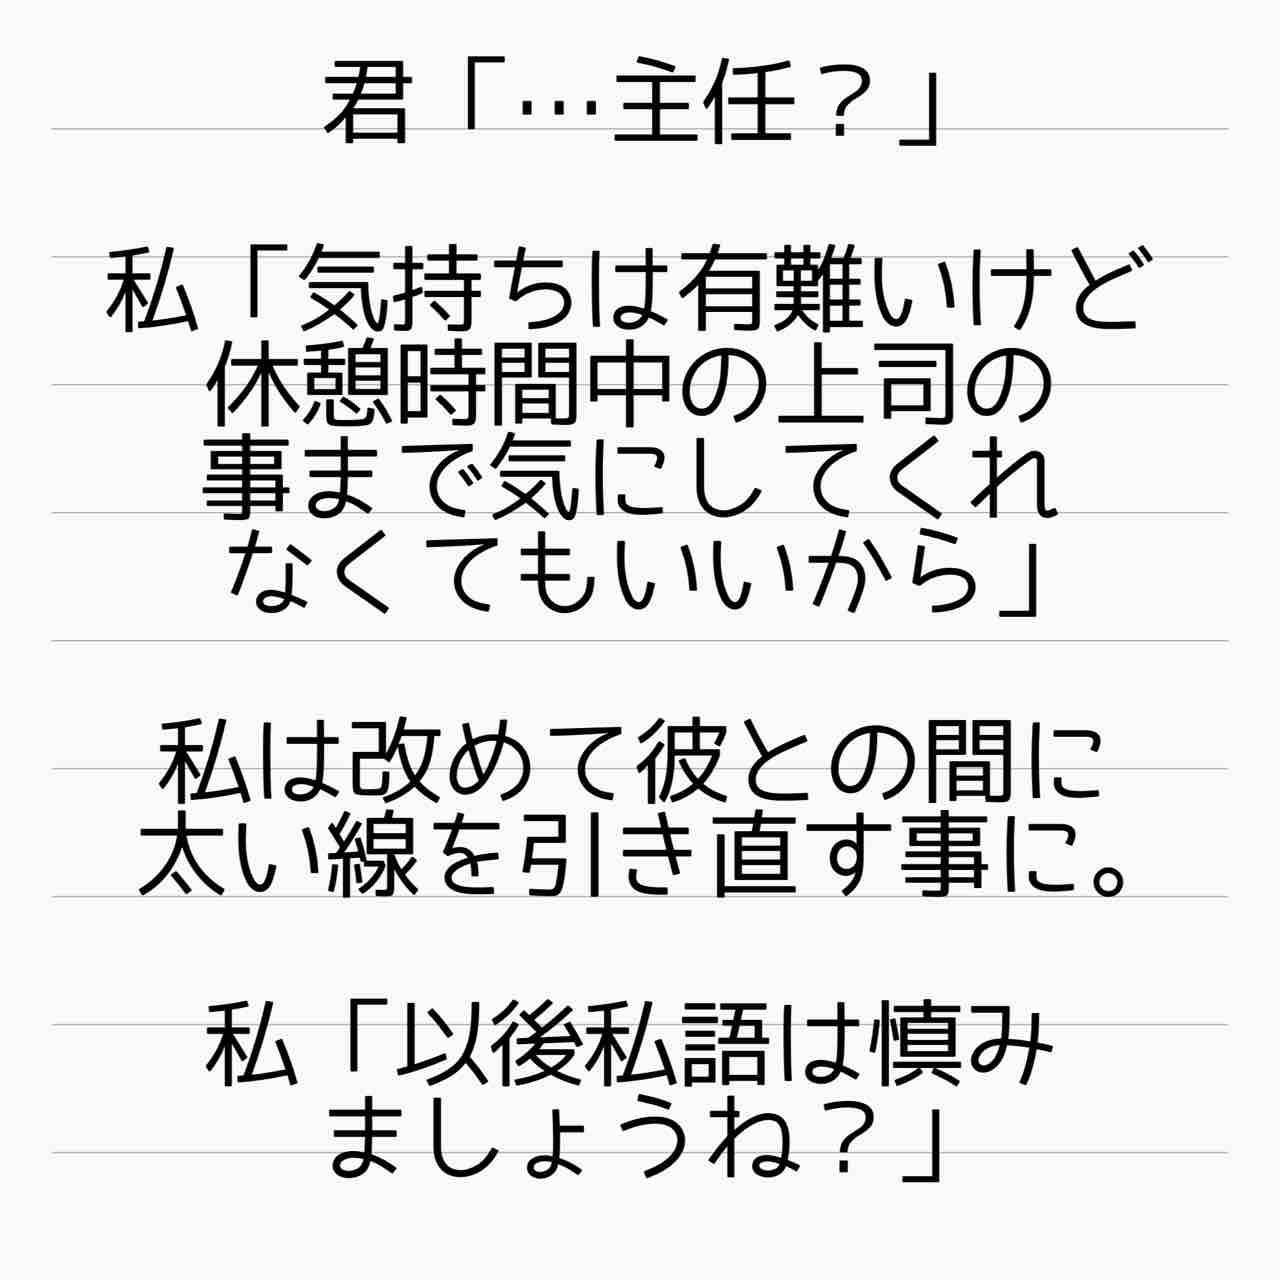 君「…主任？」
私「気持ちは有難いけど
休憩時間中の上司の
事まで気にしてくれ
なくてもいいから」
私は改めて彼との間に
太い線を引き直す事に。
私「以後私語は慎み
ましょうね？」